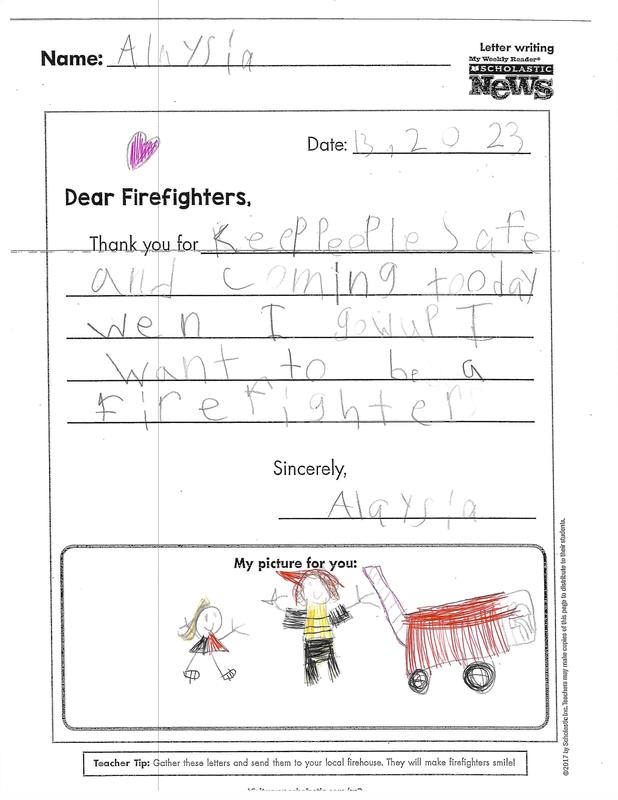 Letter writing
Name: Alaysia
My Weekly Reader®
SCHOLASTIC
News
Date: 13, 20 23
Dear Firefighters,
Thank you for KeepPeople Safe
and coming tooday
wen I gowup I
want to be a
firefighter
Sincerely,
Alaysia
My picture for you:
Teacher Tip: Gather these letters and send them to your local firehouse. They will make firefighters smile!
©2017 by Scholastic Inc. Teachers may make copies of this page to distribute to their students.